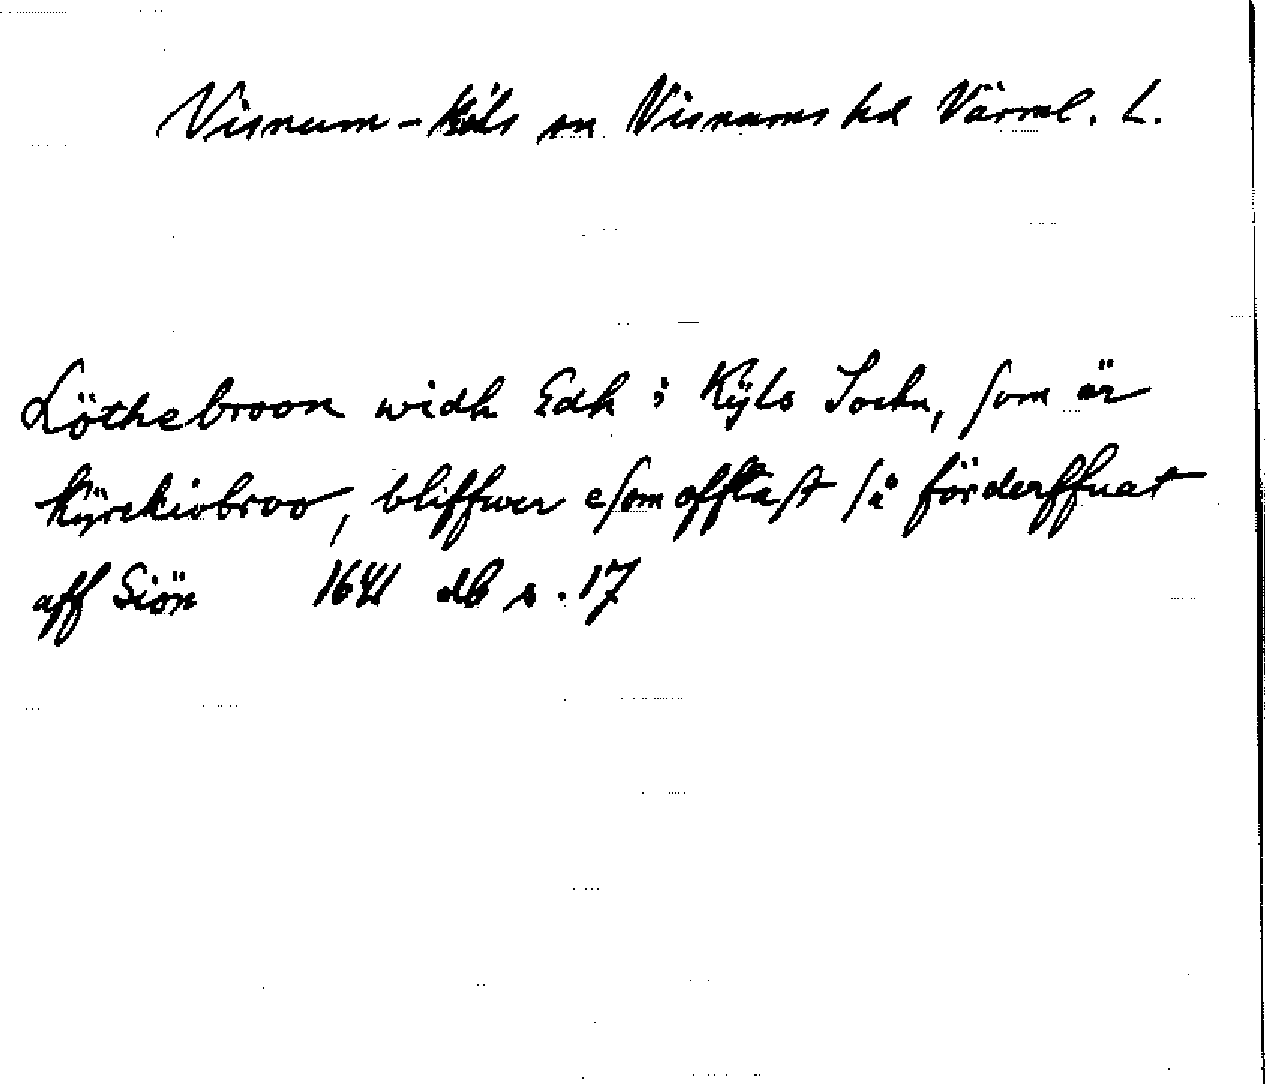 Visnum-Kils sn Visnums hd Värml. L.
Löthebroon widh Edh i Kÿls Sochn, som är
Kÿrckiobroo, bliffwer esomofftast så förderffuat
aff Siön 1641 db s. 17